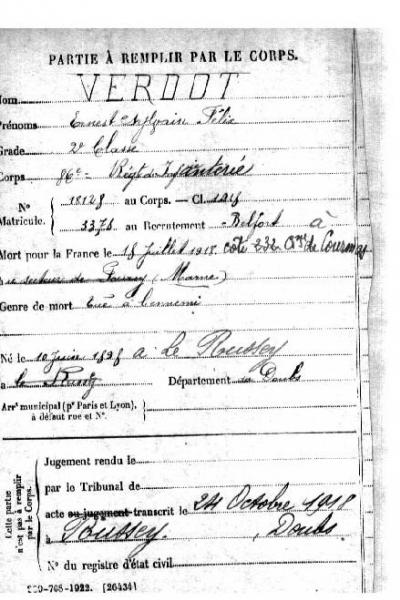 PARTIE À REMPLIR PAR LE CORPS.
Nom VERDOT
Prénoms Ernest Sylvain Félix
Grade 2e Classe
Corps 86e Régt d'Infanterie
N° Matricule. { 18128 au Corps. — Cl. 1918
3376 au Recrutement Belfort à
Mort pour la France le 15 Juillet 1918 côte 232 de Courmas
secteur (Marne)
Genre de mort Tué à l'ennemi
Né le 10 Juin 1898 à Le Roussey
à Département du Doubs
Arrt municipal (pr Paris et Lyon),
à défaut rue et N°.
Cette partie n'est pas à remplir par le Corps.
Jugement rendu le
par le Tribunal de
acte ou jugement transcrit le 24 Octobre 1918
à Doubs.
N° du registre d'état civil
1922. [26434]